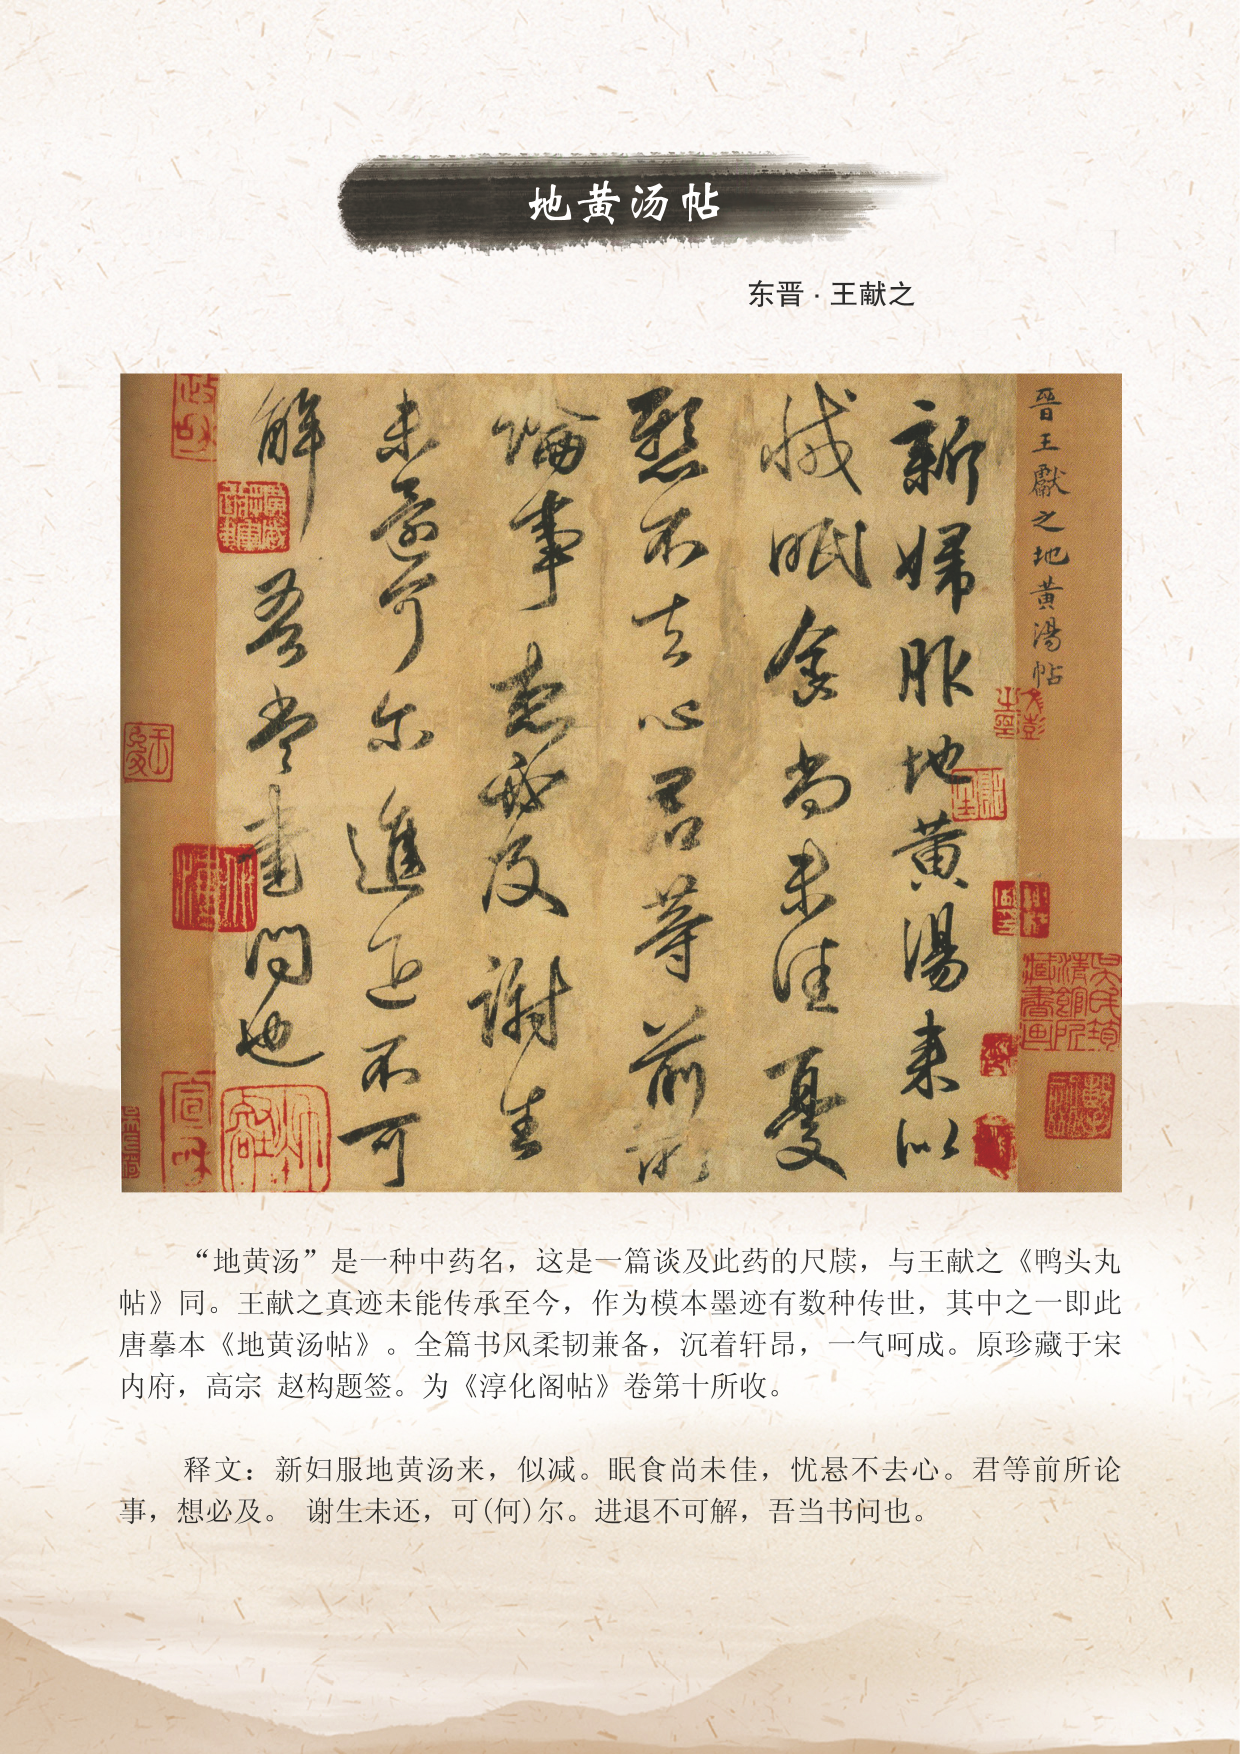 地黄汤帖
东晋·王献之
晉王獻之地黄湯帖
新婦服地黄湯来似
減眠食尚未佳憂
懸不去心君等前所
論事想必及謝生
未還可尔進退不可
解吾當書問也
“地黄汤”是一种中药名，这是一篇谈及此药的尺牍，与王献之《鸭头丸
帖》同。王献之真迹未能传承至今，作为模本墨迹有数种传世，其中之一即此
唐摹本《地黄汤帖》。全篇书风柔韧兼备，沉着轩昂，一气呵成。原珍藏于宋
内府，高宗 赵构题签。为《淳化阁帖》卷第十所收。
释文：新妇服地黄汤来，似减。眠食尚未佳，忧悬不去心。君等前所论
事，想必及。 谢生未还，可(何)尔。进退不可解，吾当书问也。